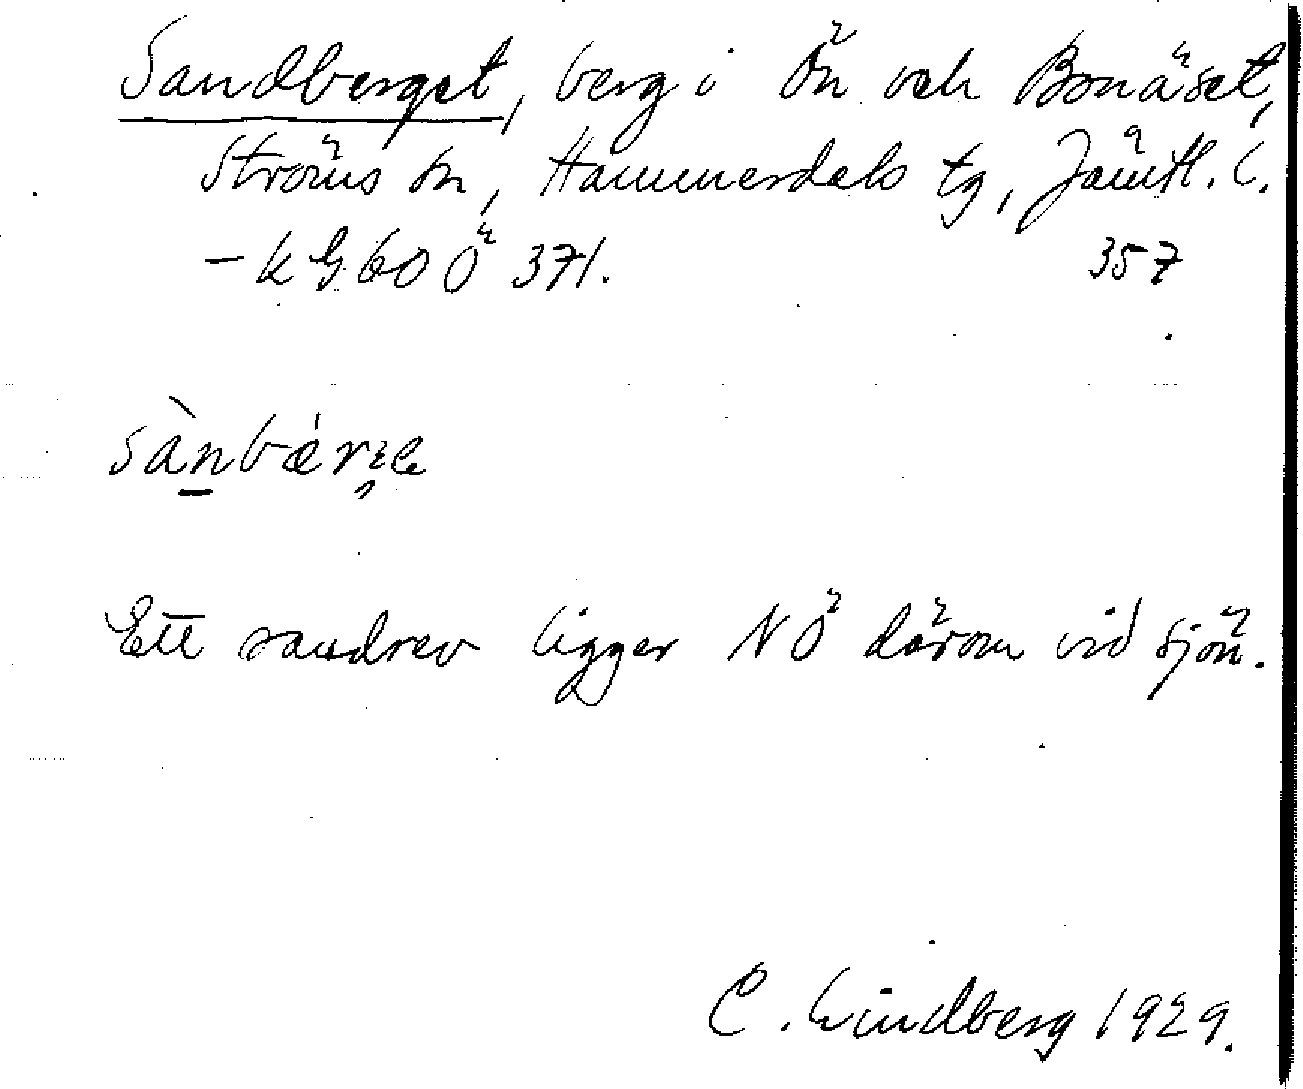 Sandberget, berg i Ön och Bonäset,
Ströms sn, Hammerdals tg, Jämtl. l.
- k G 60 Ö 371. 357
Ett sandrev ligger NÖ därom vid sjön.
C. Lindberg 1929.